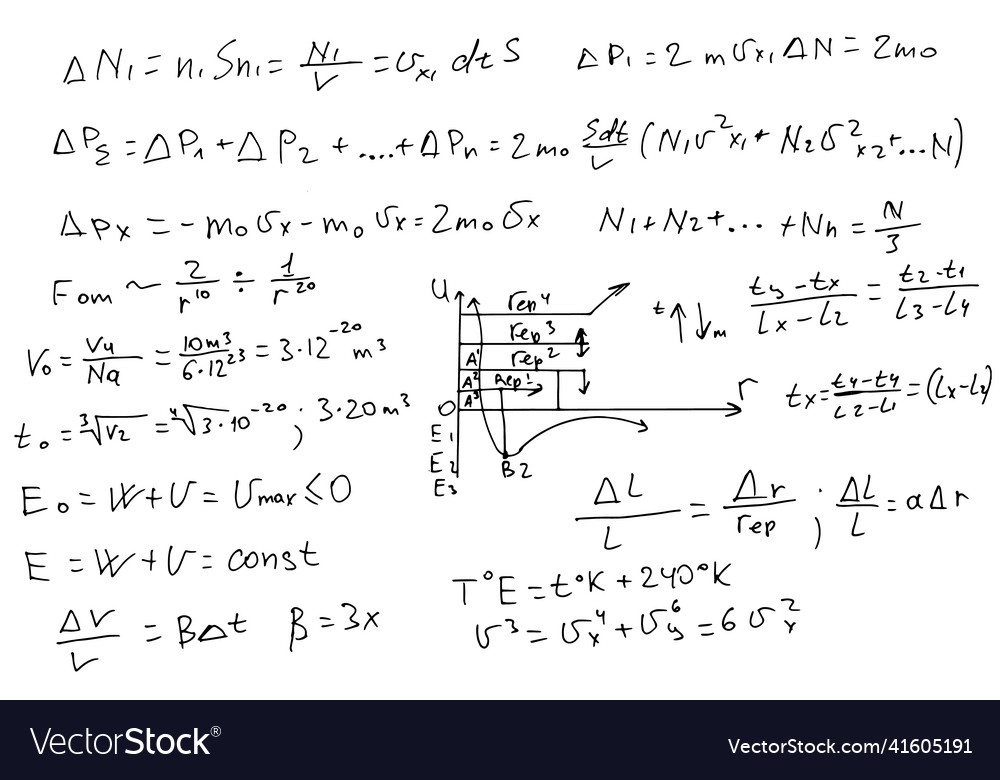 ΔN₁ = n₁Sn₁ = N₁/V = υx₁ dt S
ΔP₁ = 2 m υx₁ ΔN = 2m₀
ΔP_Σ = ΔP₁ + ΔP₂ + ....+ ΔPn = 2m₀ Sdt/V (N₁υ²x₁ + N₂υ²x₂+...N)
ΔPx = - m₀ υx - m₀ υx = 2m₀ υx
N₁+N₂+... +Nn = N/3
Fom ~ 2/r¹⁰ ÷ 1/r²⁰
V₀ = Vч/Na = 10m³/6·12²³ = 3·12⁻²⁰m³
t₀ = ³√V₂ = ⁴√3·10⁻²⁰ ; 3·20m³
E₀ = W+U = Umax ≤ 0
E = W+U = const
ΔV/V = BΔt β = 3x
U
rep⁴
rep³
A¹ rep²
A² Rep¹
A³
O r
E₁
E₂ B2
E₃
t ↑↓m
ty - tx/Lx - L2 = t2 - t1/L3 - L4
tx = t4 - t4/L2 - L1 = (Lx - L2)
ΔL/L = Δr/rep ; ΔL/L = aΔr
T°E = t°K + 240°K
υ³ = υx⁴ + υy⁶ = 6υx²
VectorStock®
VectorStock.com/41605191